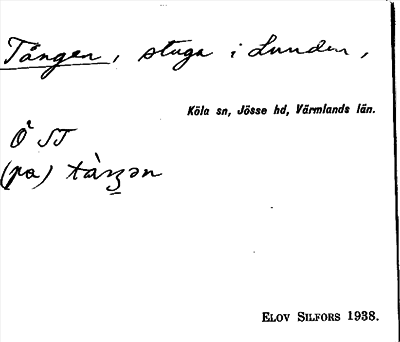 Tången, stuga i Lunden,
Köla sn, Jösse hd, Värmlands län.
Ö ST
(pa)
ELOV SILFORS 1938.